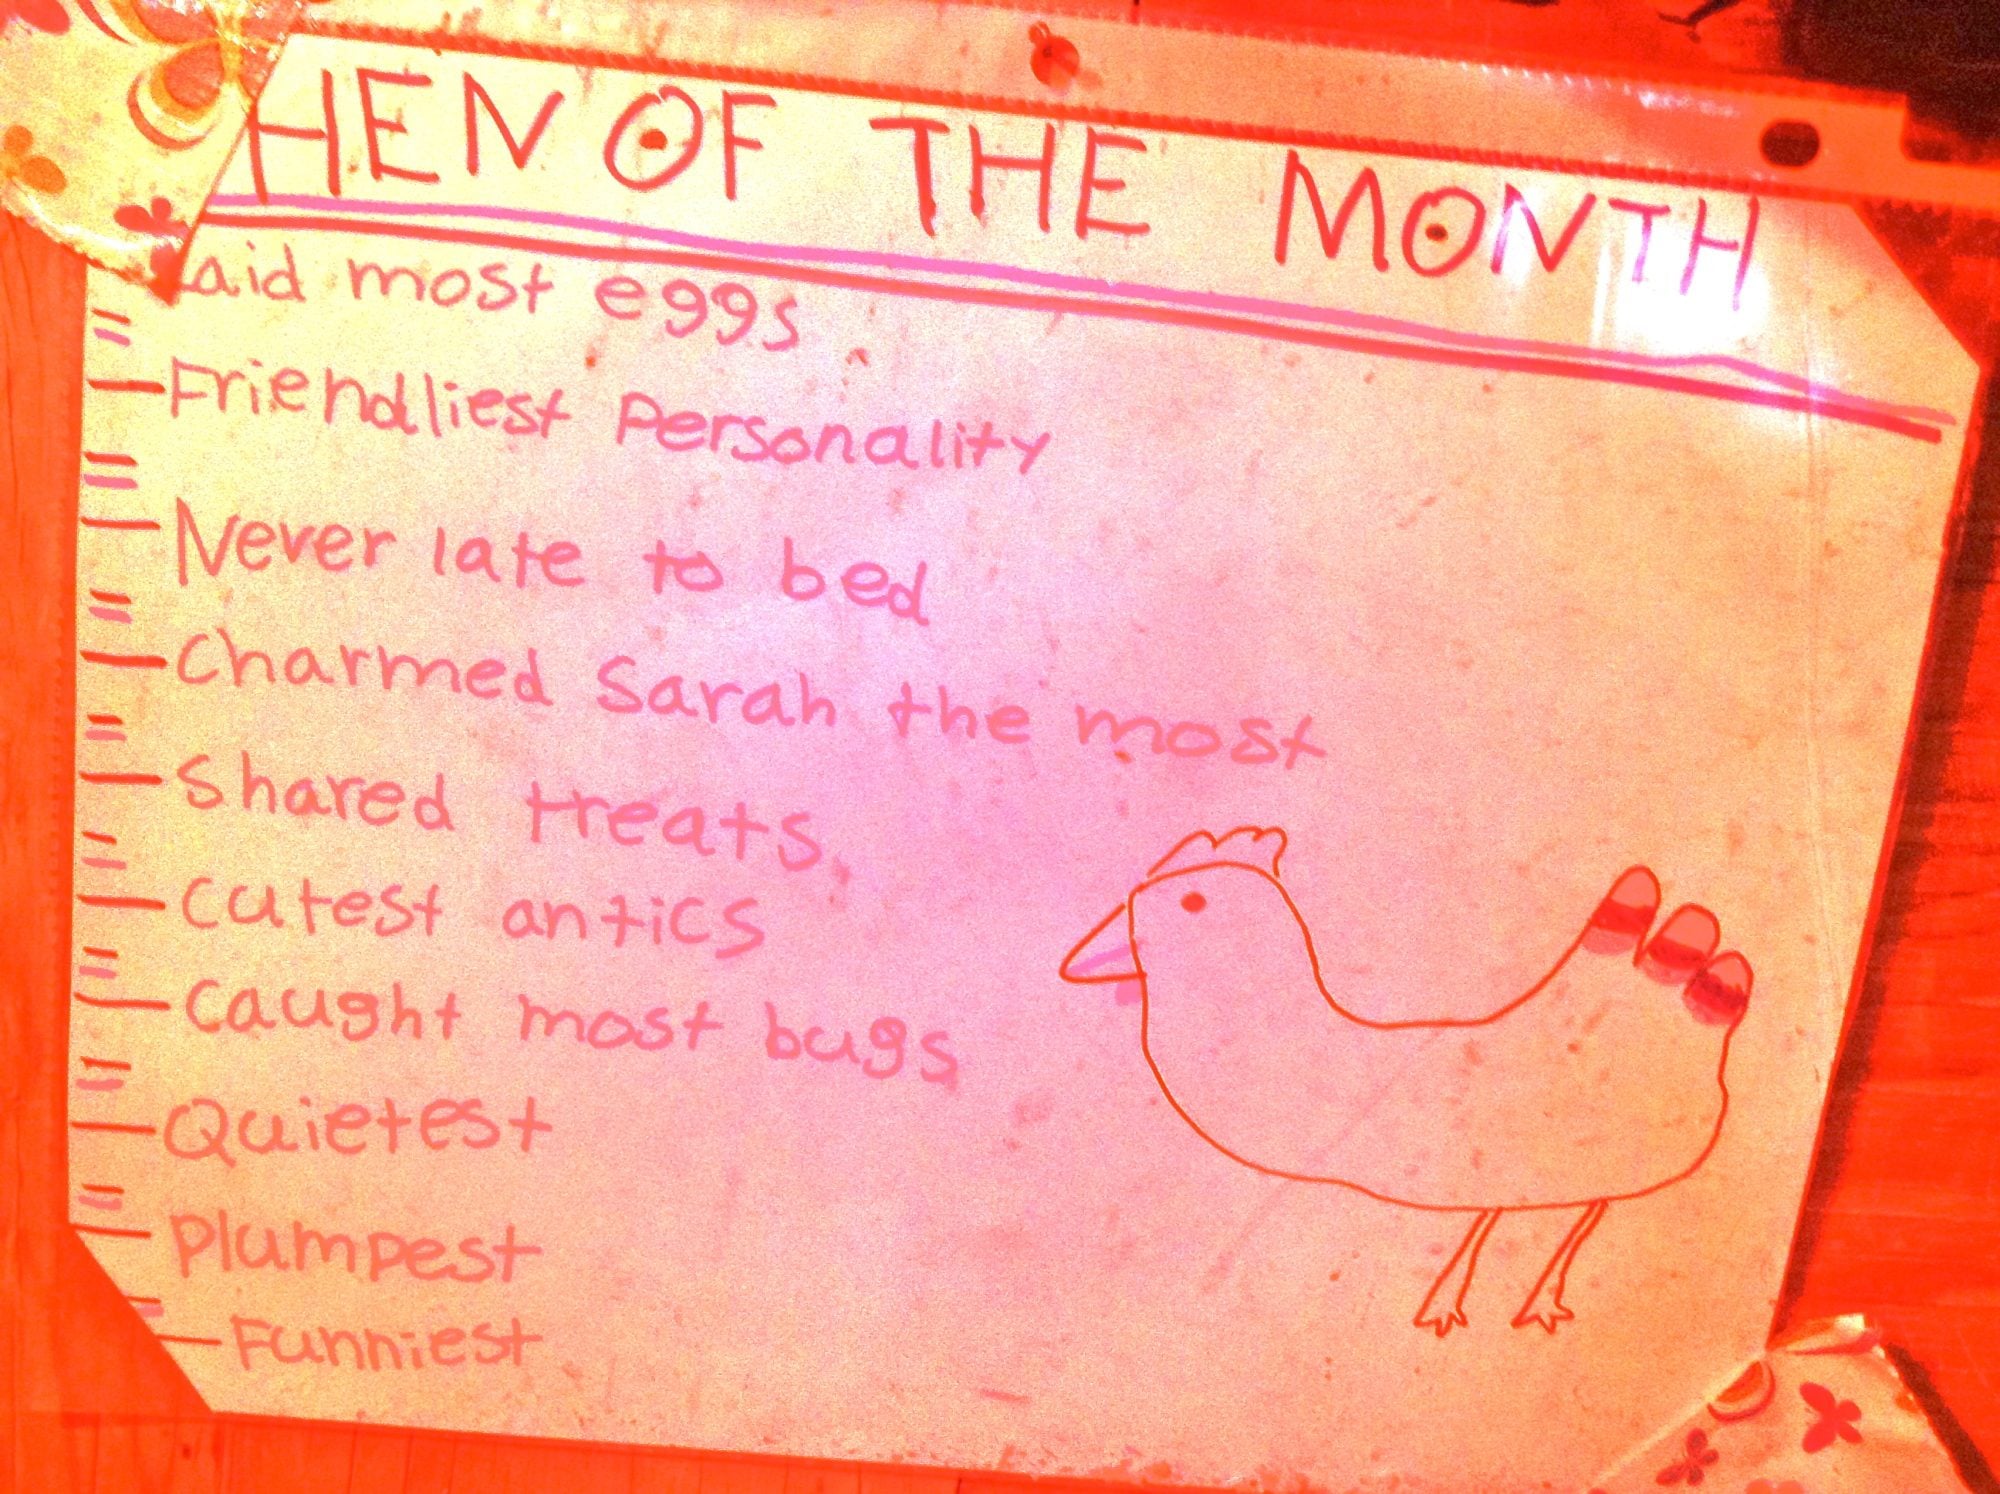 HEN OF THE MONTH
Laid most eggs
Friendliest Personality
Never late to bed
Charmed Sarah the most
Shared treats
Cutest antics
Caught most bugs
Quietest
Plumpest
Funniest